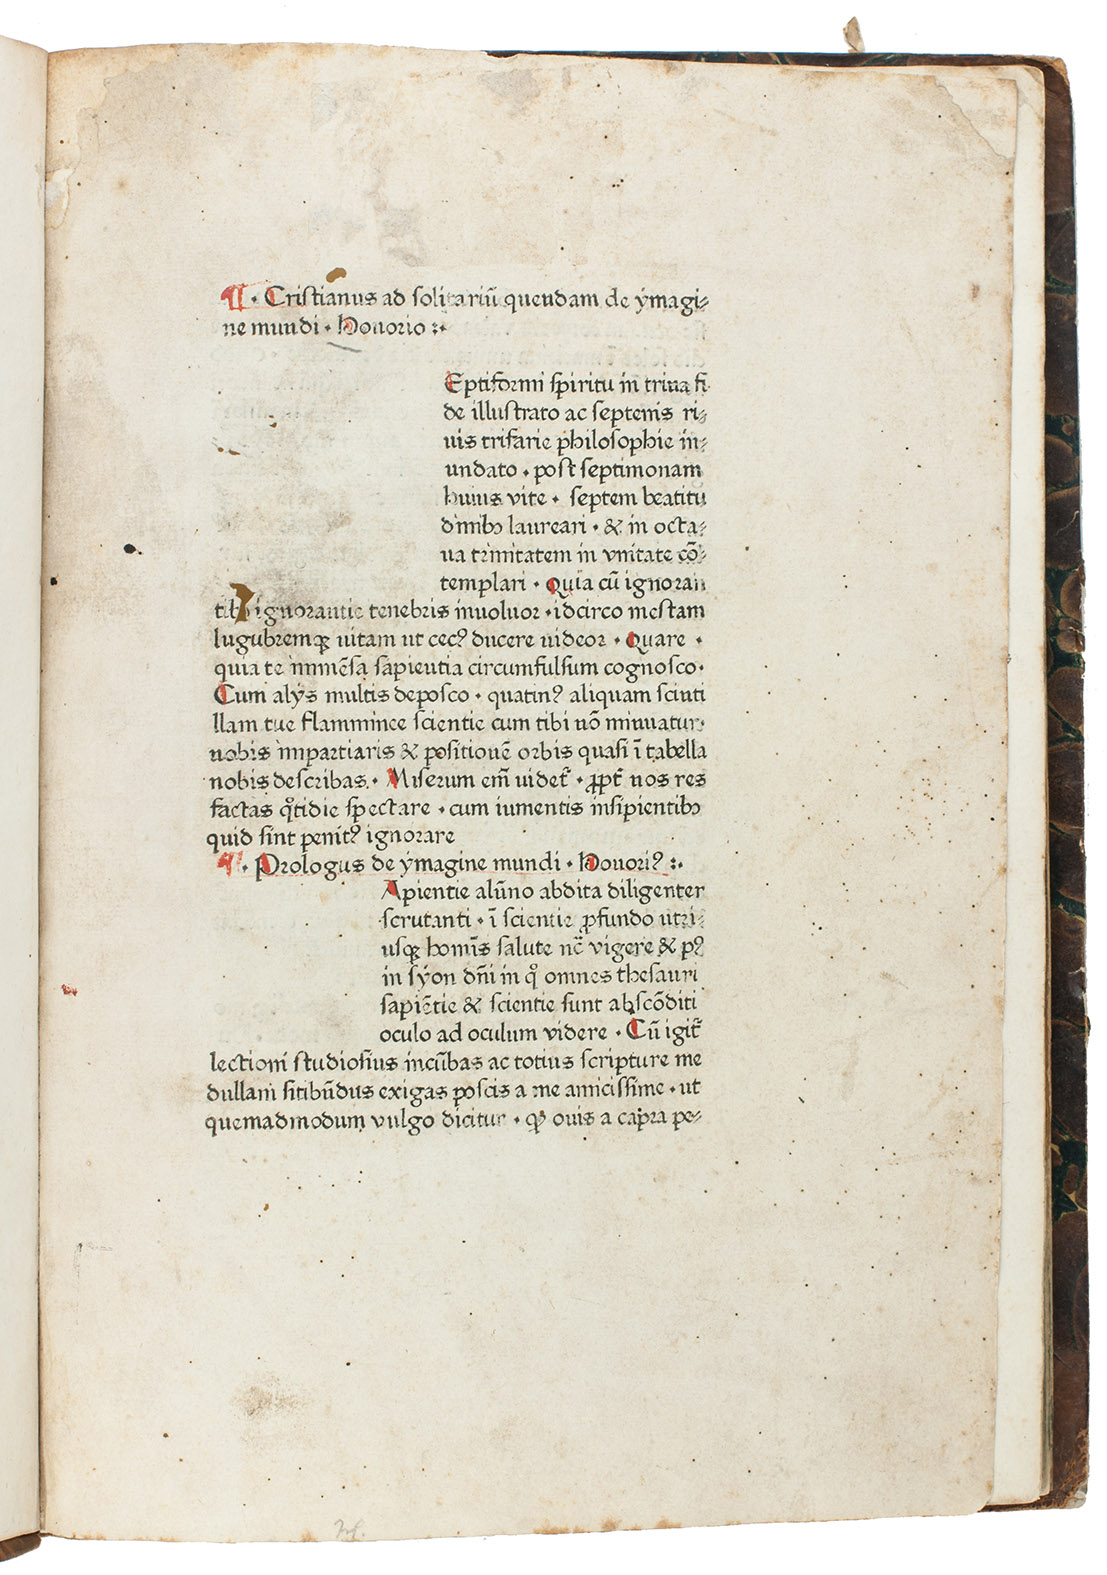 ¶ · Cristianus ad solitariū quendam de ẏmagi⸗
ne mundi · Honorio :·
Eptiformi spiritu in trina fi
de illustrato ac septenis ri⸗
uis trifarie philosophie in⸗
undato · post septimonam
huius vite · septem beatitu
dinibꝫ laureari · & in octa⸗
ua trinitatem in vnitate cō⸗
templari · Quia cū ignoran
tibꝫ ignorantie tenebris inuoluor · idcirco mestam
lugubremqꝫ uitam ut cecꝰ ducere uideor · Quare ·
quia te immēsa sapientia circumfulsum cognosco ·
Cum alẏs multis deposco · quatinꝰ aliquam scinti
llam tue flammince scientie cum tibi nō minuatur ·
nobis impartiaris & positionē orbis quasi ī tabella
nobis describas · Miserum em̄ uidet᷑ · ꝓpt᷑ nos res
factas qͦtidie spectare · cum iumentis insipientibꝫ
quid sint penitꝰ ignorare
¶ · Prologus de ẏmagine mundi · Honoriꝰ :·
Apientie alūno abdita diligenter
scrutanti · ī scientie ꝓfundo utri⸗
usqꝫ homīs salute nc̄ vigere & pꝰ
in sẏon dn̄i in qͦ omnes thesauri
sapiētie & scientie sunt abscōditi
oculo ad oculum videre · Cū igit᷑
lectioni studiosius incūbas ac totius scripture me
dullam sitibūdus exigas poscis a me amicissime · ut
quemadmodum vulgo dicitur · qꝫ ouis a capra pe⸗